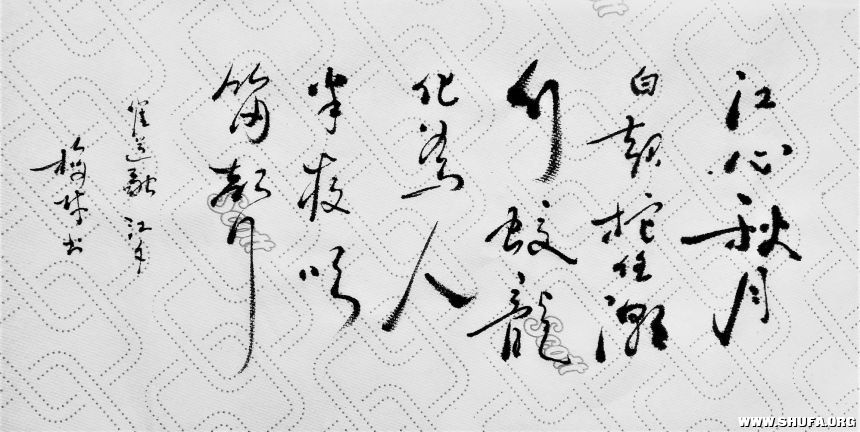 江心秋月
白起柁信潮
行蛟龍
化為人
半夜吹
笛聲
崔道融 江夕
书
WWW.SHUFA.ORG